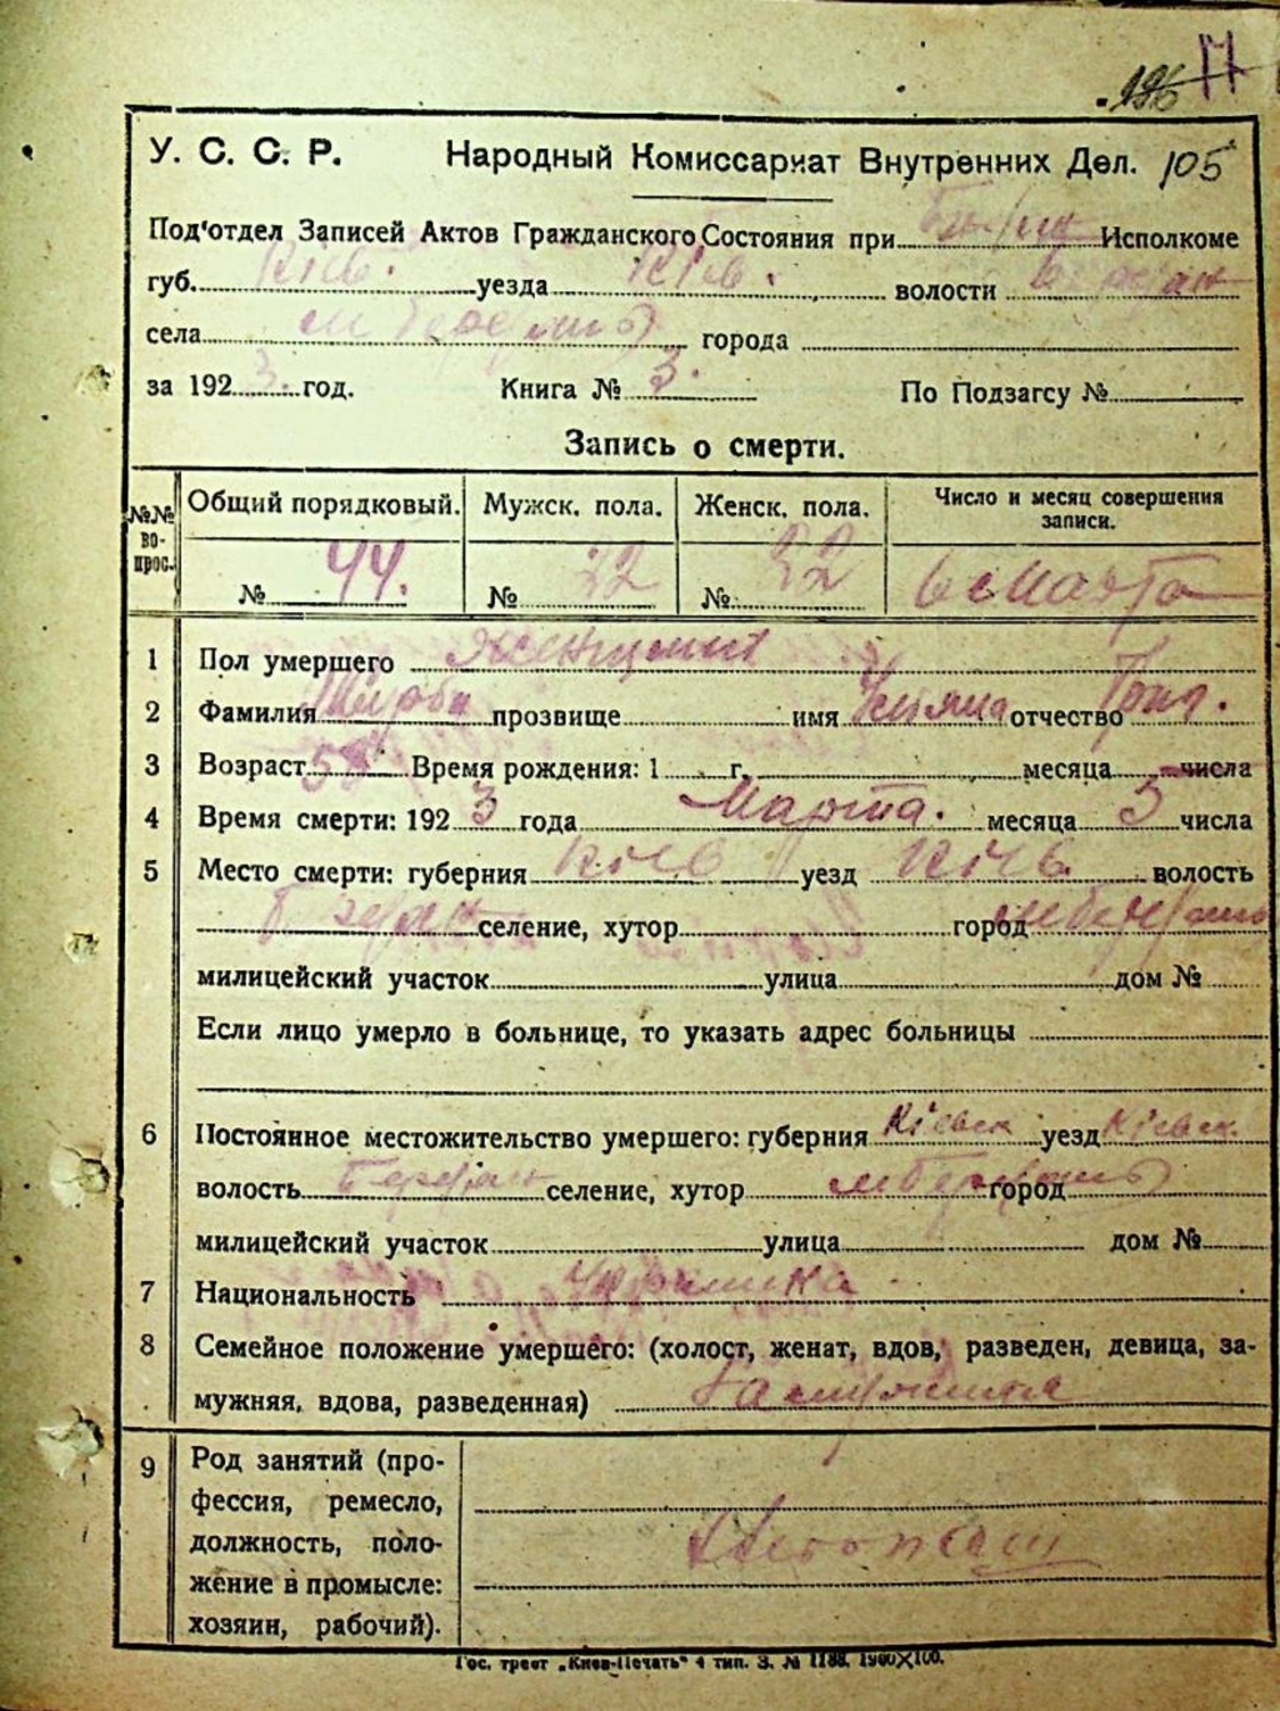 196 17
У. С. С. Р. Народный Комиссариат Внутренних Дел. 105
Под'отдел Записей Актов Гражданского Состояния при Исполкоме
губ. Київ. уезда Київ. волости
села города
за 1923. год. Книга № 3. По Подзагсу №
Запись о смерти.
№№ вопрос. Общий порядковый. Мужск. пола. Женск. пола. Число и месяц совершения записи.
№ 44. № 22 № 22 6 Марта
1 Пол умершего
2 Фамилия прозвище имя Уляна отчество
3 Возраст Время рождения: 1 г. месяца числа
4 Время смерти: 1923 года Марта. месяца 5 числа
5 Место смерти: губерния Київ уезд Київ. волость
селение, хутор город
милицейский участок улица дом №
Если лицо умерло в больнице, то указать адрес больницы
6 Постоянное местожительство умершего: губерния Київск уезд Київск.
волость селение, хутор город
милицейский участок улица дом №
7 Национальность Украинка
8 Семейное положение умершего: (холост, женат, вдов, разведен, девица, за-
мужняя, вдова, разведенная)
9 Род занятий (про-
фессия, ремесло,
должность, поло-
жение в промысле:
хозяин, рабочий).
Гос. трест „Киев-Печать" 4 тип. З. № 1188. 1900X100.